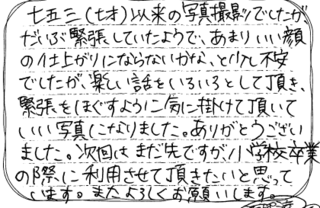 七五三(七才)以来の写真撮影でしたが
だいぶ緊張していたようで、あまりいい顔
の仕上がりにならないかな、と少し不安
でしたが、楽しい話をいろいろとして頂き、
緊張をほぐすように気に掛けて頂いて
いい写真になりました。ありがとうござい
ました。次回はまだ先ですが小学校卒業
の際に利用させて頂きたいと思って
います。またよろしくお願いします。